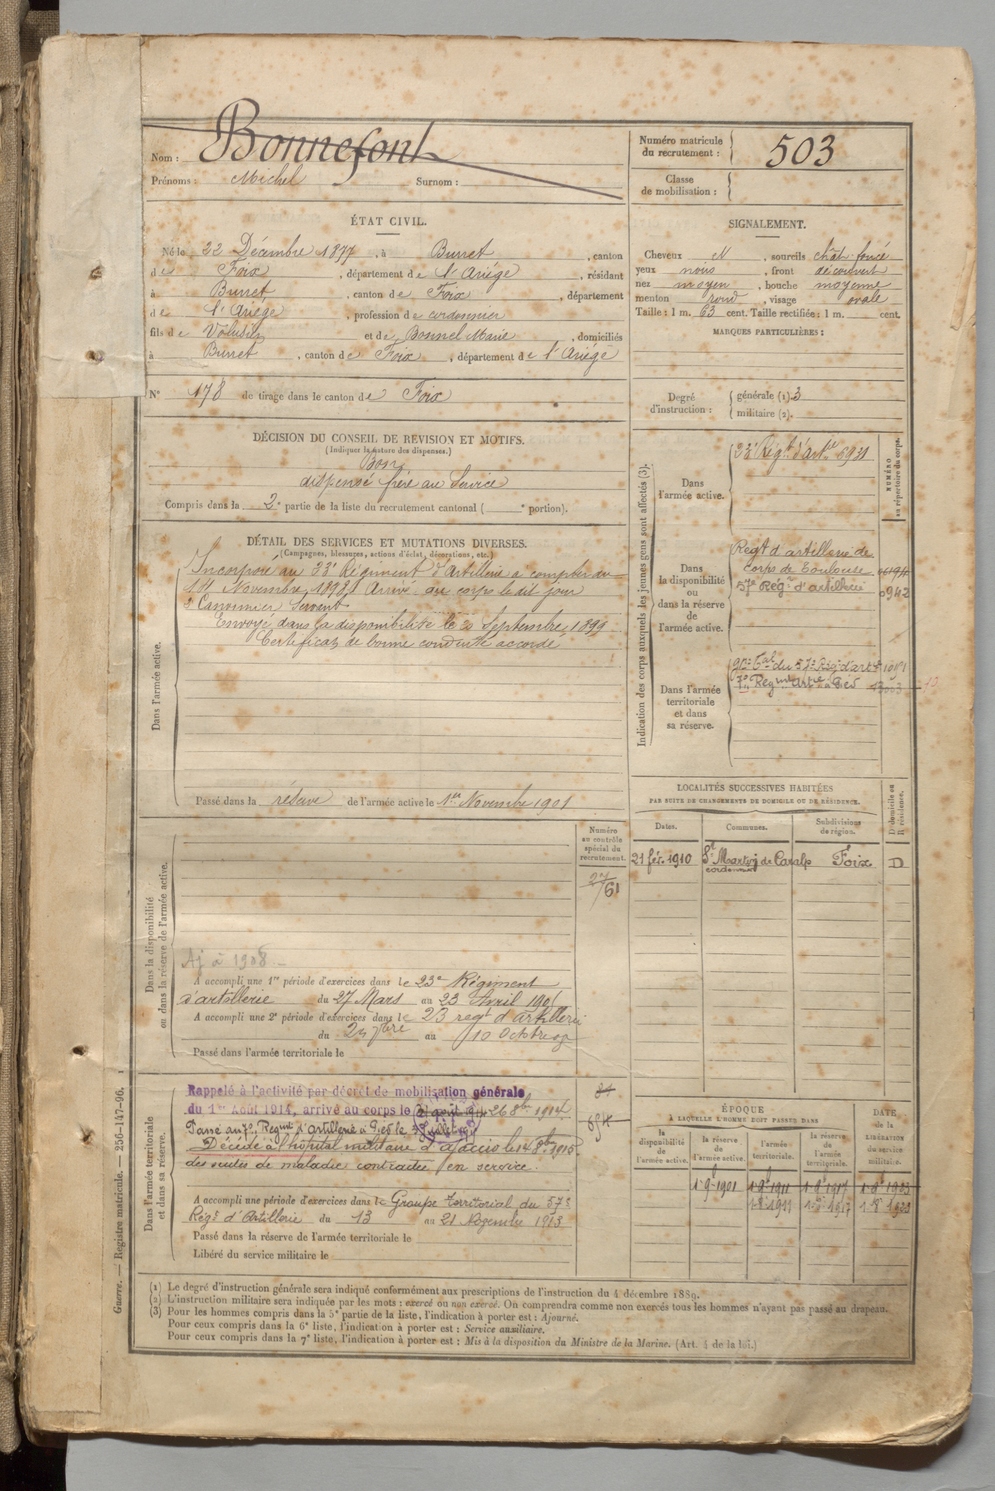 Nom : Bonnefont
Prénoms : Michel Surnom :
Numéro matricule du recrutement : 503
Classe de mobilisation :
ÉTAT CIVIL.
Né le 22 Décembre 1877, à Burret, canton
de Foix, département de l'Ariège, résidant
à Burret, canton de Foix, département
de l'Ariège, profession de cordonnier
fils de Volusien et de Bonnel Marie, domiciliés
à Burret, canton de Foix, département de l'Ariège
N° 178 de tirage dans le canton de Foix
SIGNALEMENT.
Cheveux N, sourcils chât. foncé
yeux , front découvert
nez moyen, bouche moyenne
menton rond, visage ovale
Taille : 1 m. 63 cent. Taille rectifiée : 1 m. cent.
MARQUES PARTICULIÈRES :
Degré d'instruction : générale (1) 3
militaire (2).
DÉCISION DU CONSEIL DE REVISION ET MOTIFS.
(Indiquer la nature des dispenses.)
Bon
dispensé frère au Service
Compris dans la 2e partie de la liste du recrutement cantonal ( e portion).
DÉTAIL DES SERVICES ET MUTATIONS DIVERSES.
(Campagnes, blessures, actions d'éclat, décorations, etc.)
Dans l'armée active.
Incorporé au 33e Régiment d'Artillerie à compter du
14 Novembre 1898. Arrivé au corps le dit jour
2e Canonnier Servant
Envoyé dans la disponibilité le 20 Septembre 1899
Certificat de bonne conduite accordé
Passé dans la réserve de l'armée active le 1er Novembre 1901
Indication des corps auxquels les jeunes gens sont affectés (3).
NUMÉRO au répertoire du corps.
Dans l'armée active.
23e Régt d'artie 5931
Dans la disponibilité ou dans la réserve de l'armée active.
Régt d'artillerie de
corps de Toulouse
57e Régt d'artillerie 0942
Dans l'armée territoriale et dans sa réserve.
LOCALITÉS SUCCESSIVES HABITÉES
PAR SUITE DE CHANGEMENTS DE DOMICILE OU DE RÉSIDENCE.
Dates. Communes. Subdivisions de région. D domicile ou R résidence.
21 fév. 1910 St Martin de Caralp Foix D
cordonnier
Dans la disponibilité ou dans la réserve de l'armée active.
Numéro au contrôle spécial du recrutement.
27/61
Aj à 1908.
A accompli une 1re période d'exercices dans le 23e Régiment
d'artillerie du 27 Mars au 23 Avril
A accompli une 2e période d'exercices dans le 23 regt d'artillerie
du au 10 Octbre
Passé dans l'armée territoriale le
Dans l'armée territoriale et dans sa réserve.
Rappelé à l'activité par décret de mobilisation générale
du 1er Août 1914, arrivé au corps le 26 8bre 1914
Passé au 7e Régmt d'artillerie à Pied le
Décédé à l'hôpital militaire d'Ajaccio le 14 8bre 1915
des suites de maladie contractée en service.
A accompli une période d'exercices dans le Groupe Territorial du 57e
Régt d'Artillerie du 13 au 21 Novembre 1913
Passé dans la réserve de l'armée territoriale le
Libéré du service militaire le
ÉPOQUE
À LAQUELLE L'HOMME DOIT PASSER DANS
la disponibilité de l'armée active. la réserve de l'armée active. l'armée territoriale. la réserve de l'armée territoriale.
DATE de la LIBÉRATION du service militaire.
1-9-1901 1-9-1911 1-9-1917
(1) Le degré d'instruction générale sera indiqué conformément aux prescriptions de l'instruction du 4 décembre 1889.
(2) L'instruction militaire sera indiquée par les mots : exercé ou non exercé. On comprendra comme non exercés tous les hommes n'ayant pas passé au drapeau.
(3) Pour les hommes compris dans la 5e partie de la liste, l'indication à porter est : Ajourné.
Pour ceux compris dans la 6e liste, l'indication à porter est : Service auxiliaire.
Pour ceux compris dans la 7e liste, l'indication à porter est : Mis à la disposition du Ministre de la Marine. (Art. 4 de la loi.)
Guerre. — Registre matricule. — 256-147-96.